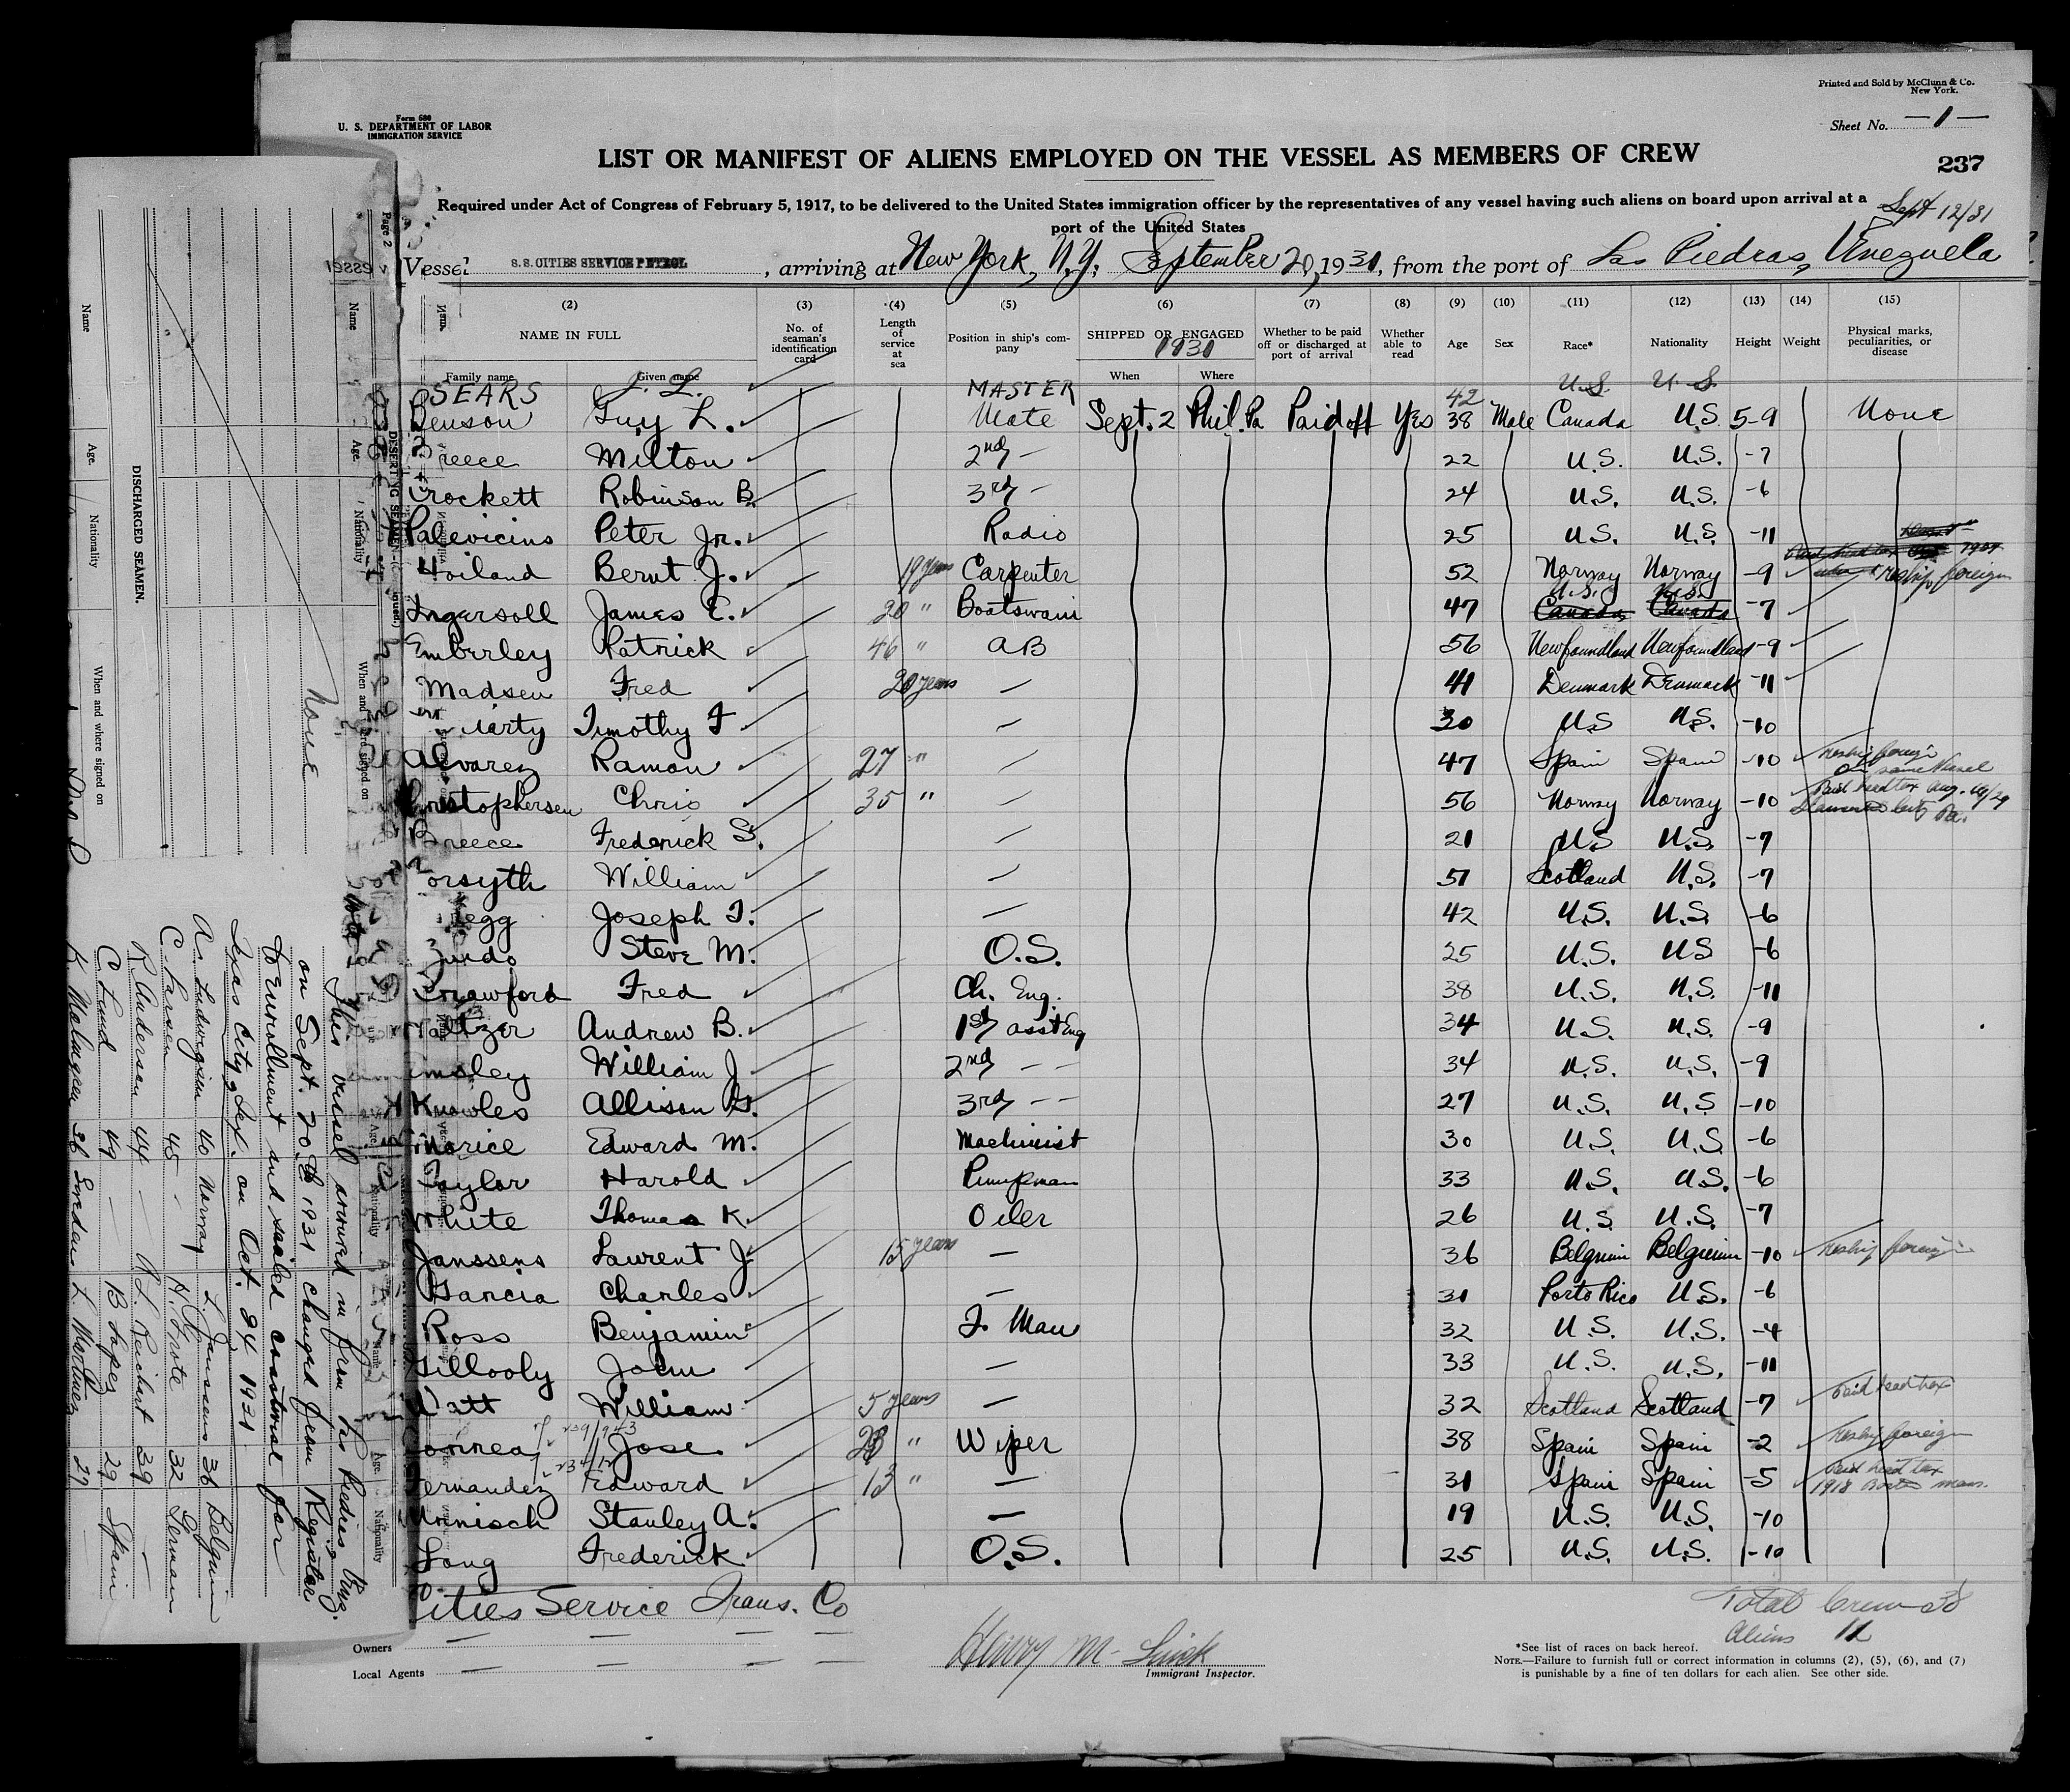 Printed and Sold by McClunn & Co.
New York.
Form 680
U. S. DEPARTMENT OF LABOR
IMMIGRATION SERVICE
Sheet No. — 1 —
LIST OR MANIFEST OF ALIENS EMPLOYED ON THE VESSEL AS MEMBERS OF CREW
237
Required under Act of Congress of February 5, 1917, to be delivered to the United States immigration officer by the representatives of any vessel having such aliens on board upon arrival at a
port of the United States
Sept 12/31
Vessel S.S. CITIES SERVICE PETROL, arriving at New York, N.Y., September 20, 1931, from the port of Las Piedras, Venezuela
(2) (3) (4) (5) (6) (7) (8) (9) (10) (11) (12) (13) (14) (15)
NAME IN FULL No. of seaman's identification card Length of service at sea Position in ship's company SHIPPED OR ENGAGED 1931 Whether to be paid off or discharged at port of arrival Whether able to read Age Sex Race* Nationality Height Weight Physical marks, peculiarities, or disease
Family name Given name When Where
SEARS J. L. MASTER 42 U.S. U.S.
Benson Guy L. Mate Sept. 2 Phil. Pa Paid off Yes 38 Male Canada U.S. 5-9 None
Breece Milton 2nd — 22 U.S. U.S. -7
Crockett Robinson B. 3rd — 24 U.S. U.S. -6
Palevicins Peter Jr. Radio 25 U.S. U.S. -11
Hoiland Bernt J. 19 years Carpenter 52 Norway Norway -9 reship foreign
U.S. U.S.
Ingersoll James E. 20 " Boatswain 47 Canada Canada -7
Emberley Patrick 46 " AB 56 Newfoundland Newfoundland -9
Madsen Fred 20 years — 41 Denmark Denmark -11
Timothy F — 30 U.S U.S. -10
Alvarez Ramon 27 " — 47 Spain Spain -10 Reship foreign
on same Vessel
Christophersen Chris 35 " — 56 Norway Norway -10 Paid head tax Aug.
Breece Frederick S. — 21 U.S U.S. -7
Forsyth William — 51 Scotland U.S. -7
Joseph T. — 42 U.S. U.S. -6
Steve M. O.S. 25 U.S. U.S -6
Crawford Fred Ch. Eng. 38 U.S. U.S. -11
Waltzer Andrew B. 1st asst Eng 34 U.S. U.S. -9
William J 2nd — — 34 U.S. U.S. -9
Knowles Allison G. 3rd — — 27 U.S. U.S -10
Morice Edward M. Machinist 30 U.S. U.S. -6
Taylor Harold Pumpman 33 U.S. U.S. -6
White Thomas K. Oiler 26 U.S. U.S. -7
Janssens Laurent J 15 years — 36 Belgium Belgium -10 Reship foreign
Garcia Charles — 31 Porto Rico U.S. -6
Ross Benjamin F. Man 32 U.S. U.S. -4
Gillooly John — 33 U.S. U.S. -11
Watt William 5 years — 32 Scotland Scotland -7 Paid head tax
Correa Jose " Wiper 38 Spain Spain -2 Reship foreign
Fernandez Edward 13 " — 31 Spain Spain -5 Paid head tax
1918
Stanley A. — 19 U.S. U.S. -10
Long Frederick O.S. 25 U.S. U.S. -10
Cities Service Trans. Co
Owners
Local Agents
Immigrant Inspector.
Total Crew 38
Aliens 11
*See list of races on back hereof.
NOTE.—Failure to furnish full or correct information in columns (2), (5), (6), and (7)
is punishable by a fine of ten dollars for each alien. See other side.
Page 2
Vessel
Name Age. Nationality When and where signed on
DISCHARGED SEAMEN.
Name Age. Nationality When and where signed on
None
This vessel arrived in from Las Piedras
on Sept. 20th 1931 changed from Register
to Enrollment and sailed coastwise for
Texas City, Tex. on Oct. 24 1931
A. Ludwigsen 40 Norway L. Janssens 36 Belgium
C. Larsen 45 - H. Grote 32 German
R. Andersen 44 — L. Reichert 39 —
C. Lund 49 — B Lopez 29 Spain
K. Malmgren 36 Sweden L. Martinez 29